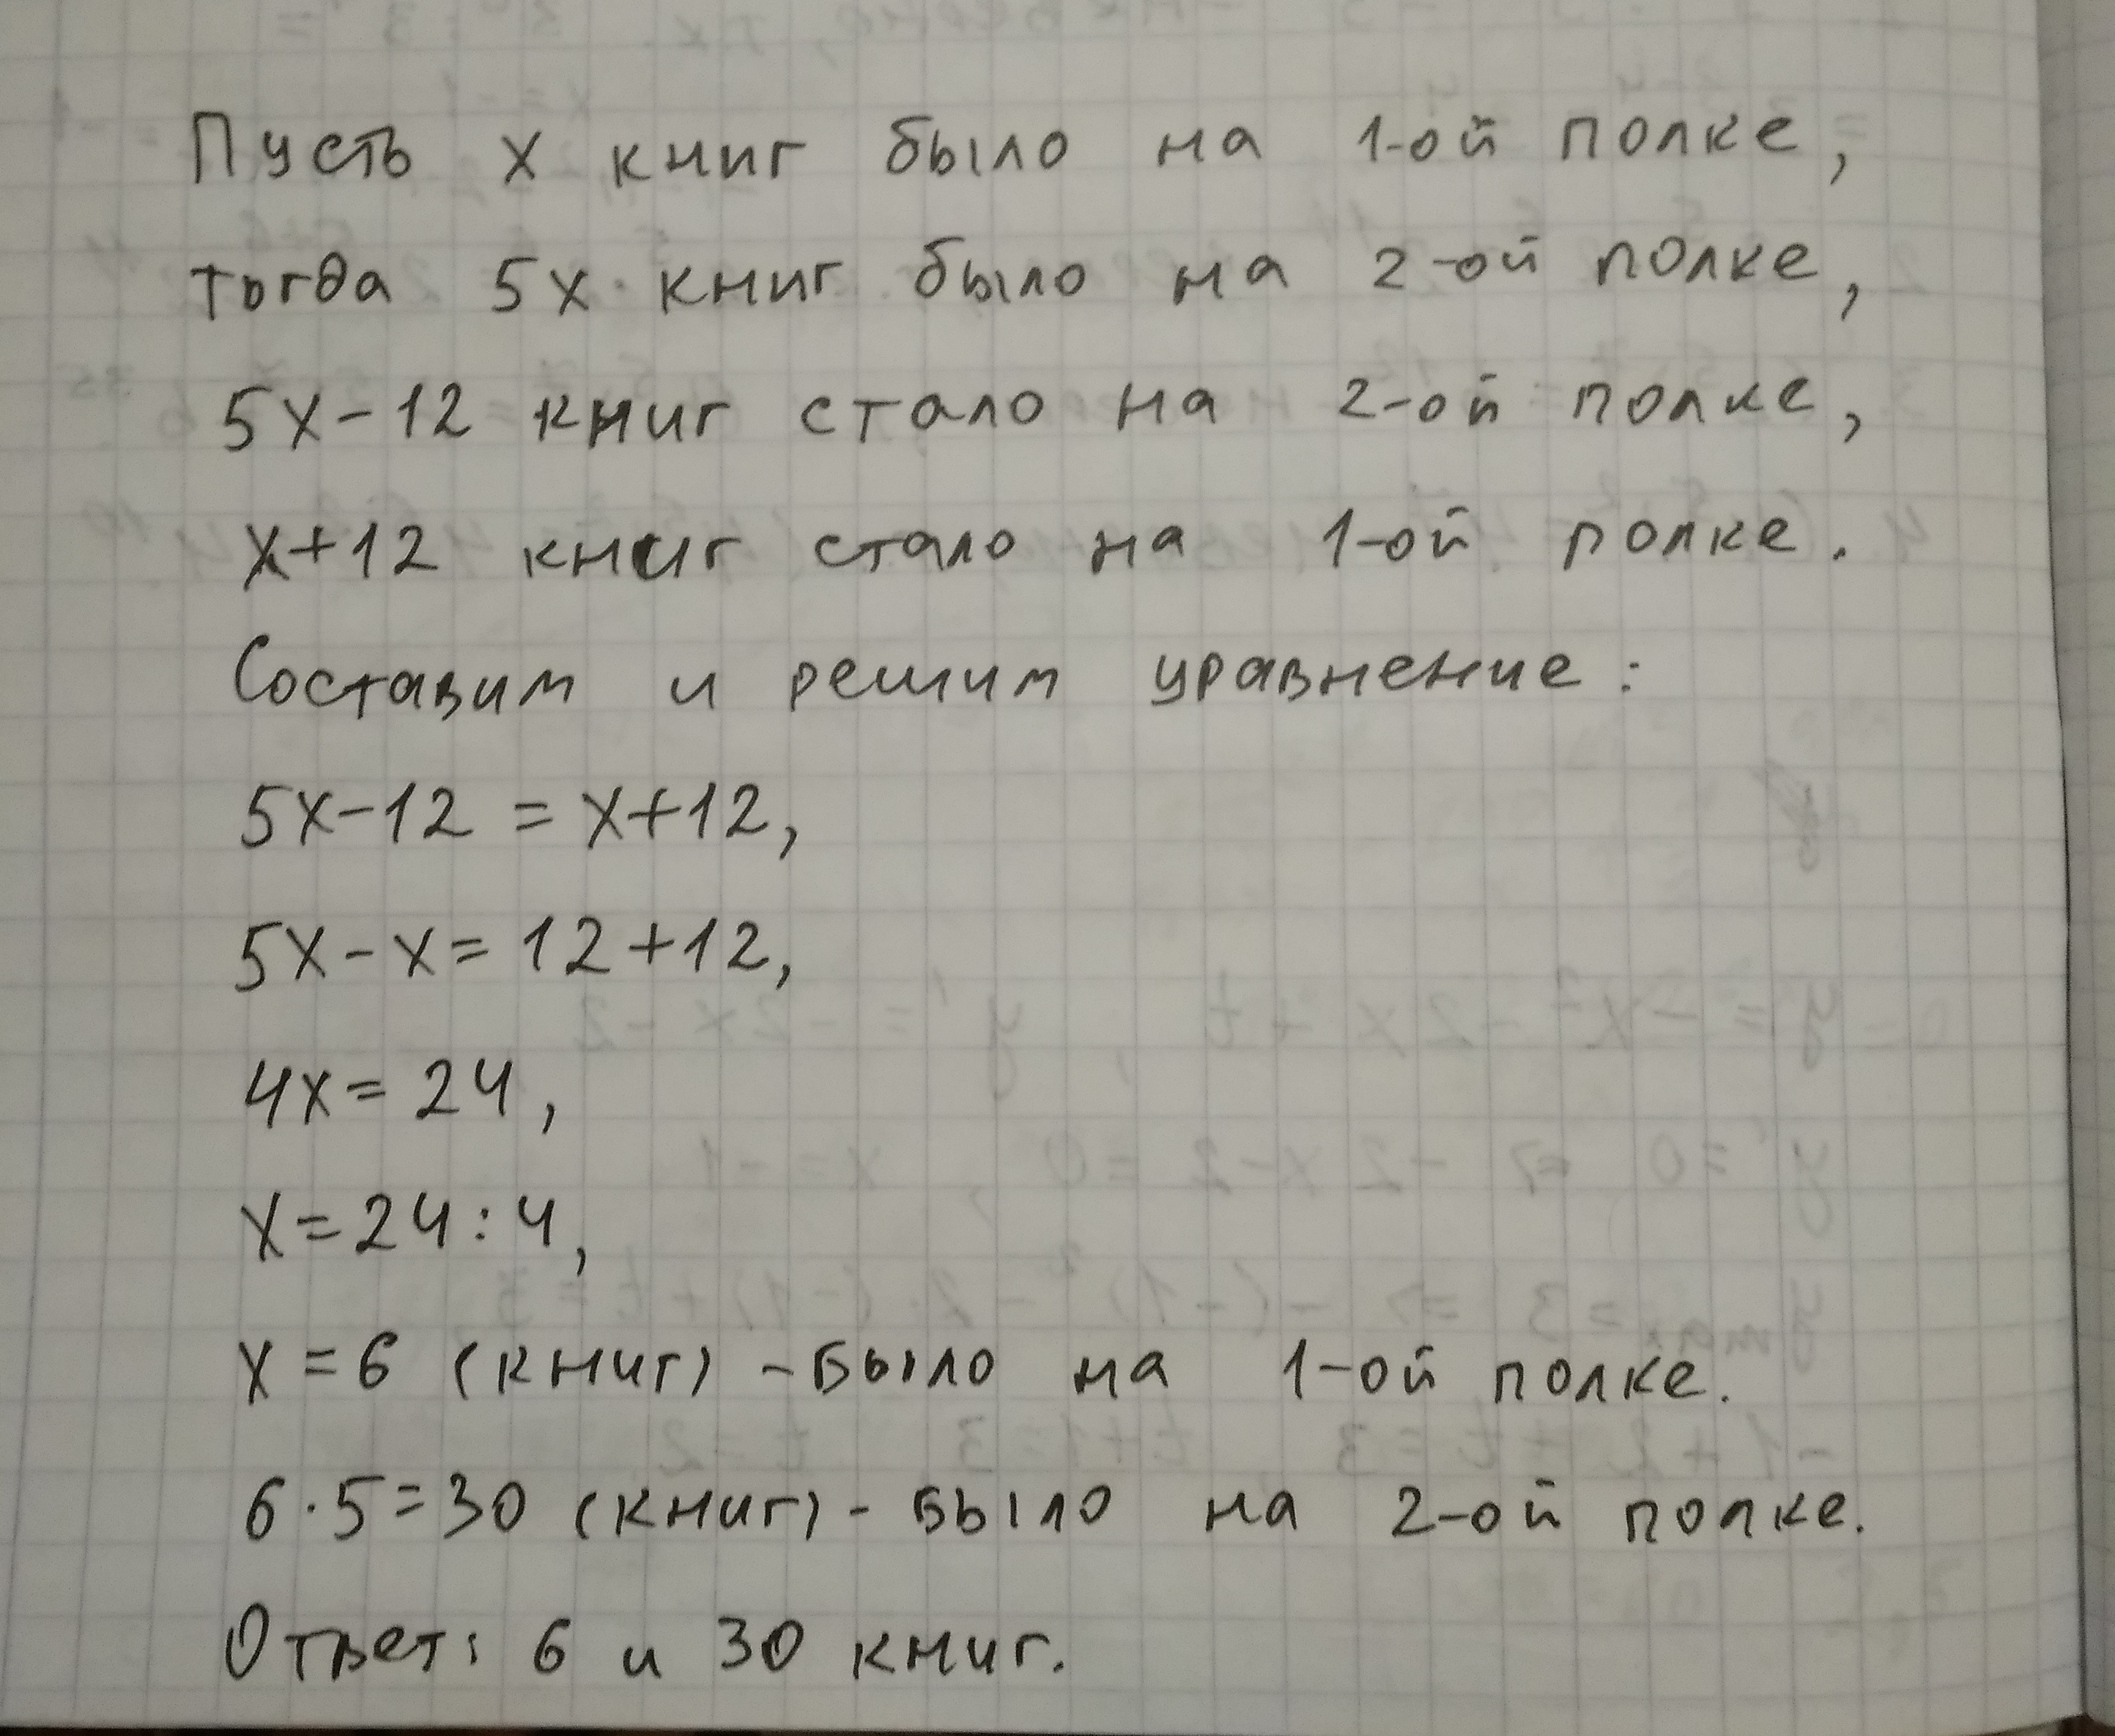 Пусть x книг было на 1-ой полке,
тогда 5x книг было на 2-ой полке,
5x-12 книг стало на 2-ой полке,
x+12 книг стало на 1-ой полке.
Составим и решим уравнение:
5x-12 = x+12,
5x-x= 12+12,
4x= 24,
x=24:4,
x=6 (книг) -было на 1-ой полке.
6·5=30 (книг) - было на 2-ой полке.
Ответ: 6 и 30 книг.